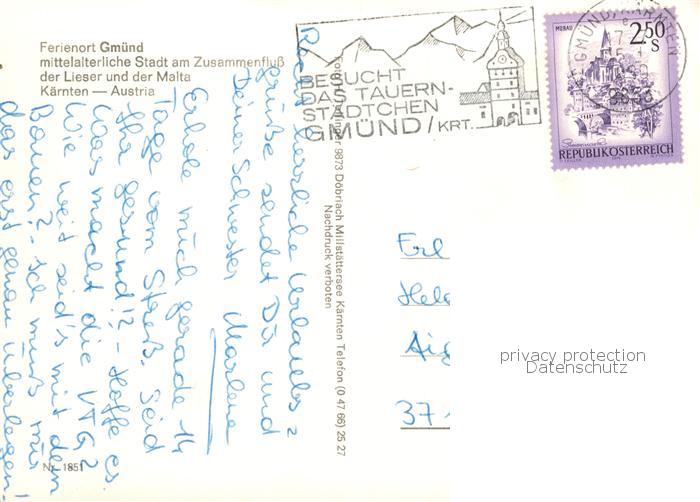 Ferienort Gmünd
mittelalterliche Stadt am Zusammenfluß
der Lieser und der Malta
Kärnten — Austria
BESUCHT
DAS TAUERN-
STÄDTCHEN
GMÜND/KRT.
GMÜND, KÄRNTEN
9853
MURAU
2.50
S
REPUBLIK ÖSTERREICH
Recht herzliche Urlaubs=
grüße sendet Dir und
Deiner Schwester Marlene
Erhole mich gerade 14
Tage vom Streß. Seid
Ihr gesund!? - Hoffe es.
Was macht die
Wie weit seid's mit dem
Bauen? - Ich muß mir
das erst genau überlegen!
9873 Döbriach Millstättersee Kärnten Telefon (0 47 66) 25 27
Nachdruck verboten
Erl
Hel
Aig
37
Nr. 1851
privacy protection
Datenschutz